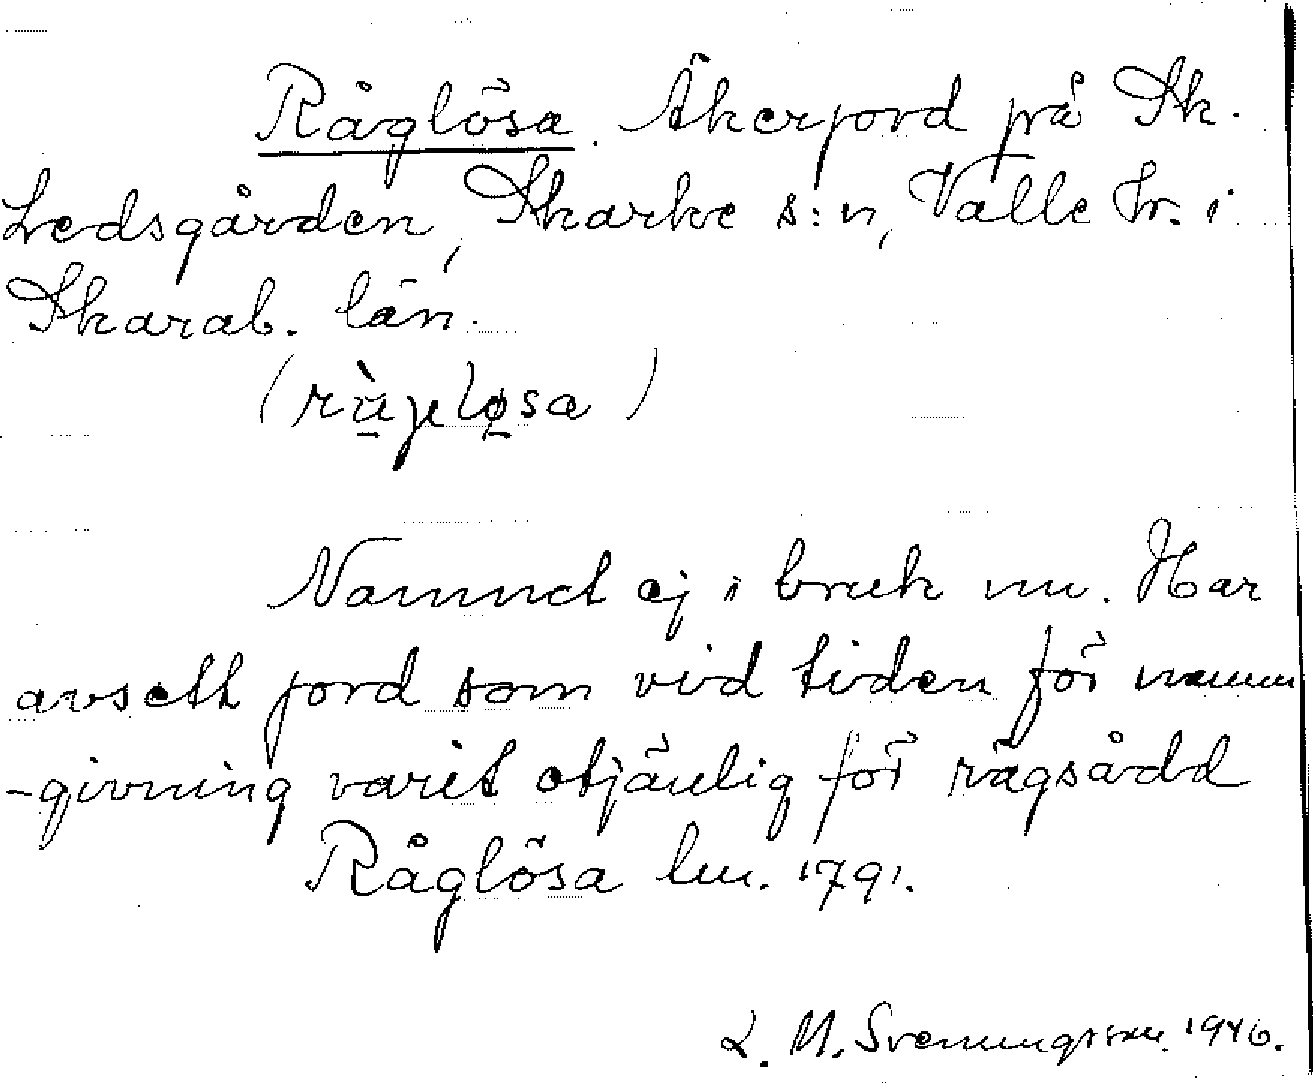 Råglösa. Åkerjord på Sk.
Ledsgården, Skarke s:n, Valle hr. i
Skarab. län.
(rù̱gelø̱sa)
Namnet ej i bruk nu. Har
avsett jord som vid tiden för namn
-givning varit otjänlig för rågsådd
Råglösa lm. 1791.
L. M. Svenungsson. 1946.